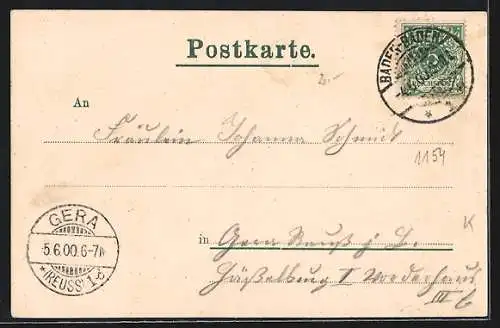 Postkarte.
BADEN-BADEN
An
Fräulein Johanna Schmidt
1154
GERA
5.6.00.6-7N
*(REUSS) 1.b
in Gera Reuß j. L.
K
I Vorderhaus
III